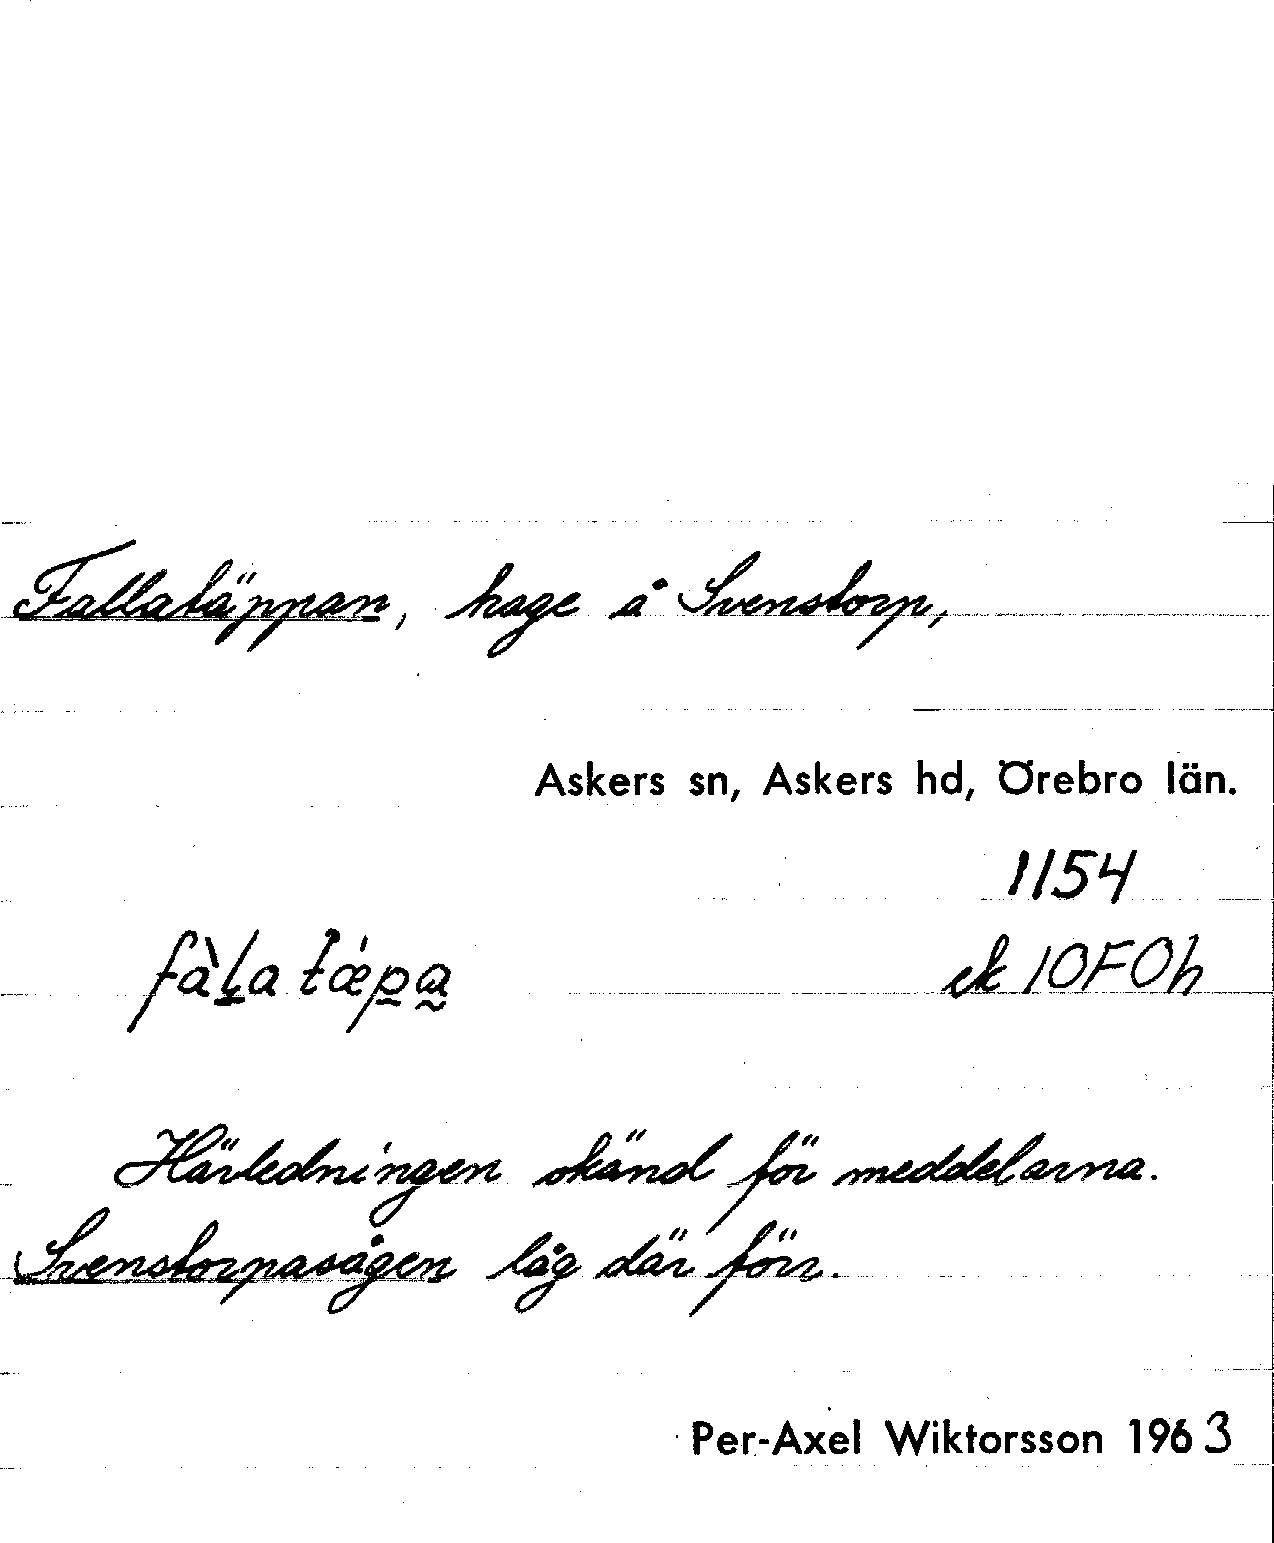 Fallatäppan, hage å Svenstorp,
Askers sn, Askers hd, Örebro län.
1154
fàl̠a tǽp̠a̰
ek 10F0h
Härledningen okänd för meddelarna.
Svenstorpasågen låg där förr.
Per-Axel Wiktorsson 1963